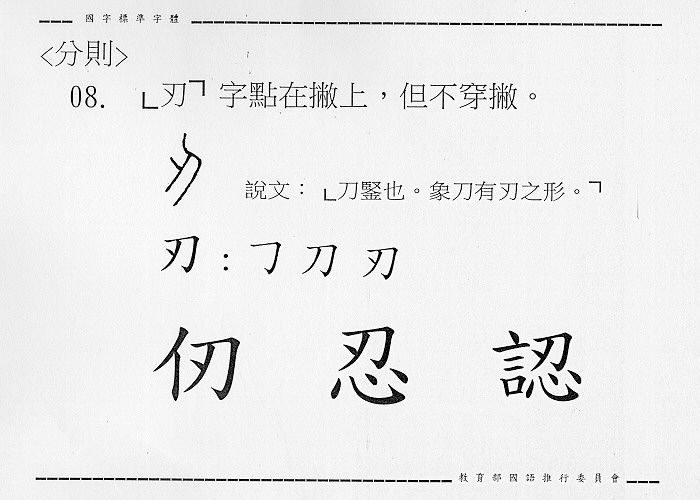 國字標準字體
<分則>
08. 「刃」字點在撇上，但不穿撇。
說文：「刀鋻也。象刀有刃之形。」
刃：㇆刀刃
仞 忍 認
教育部國語推行委員會